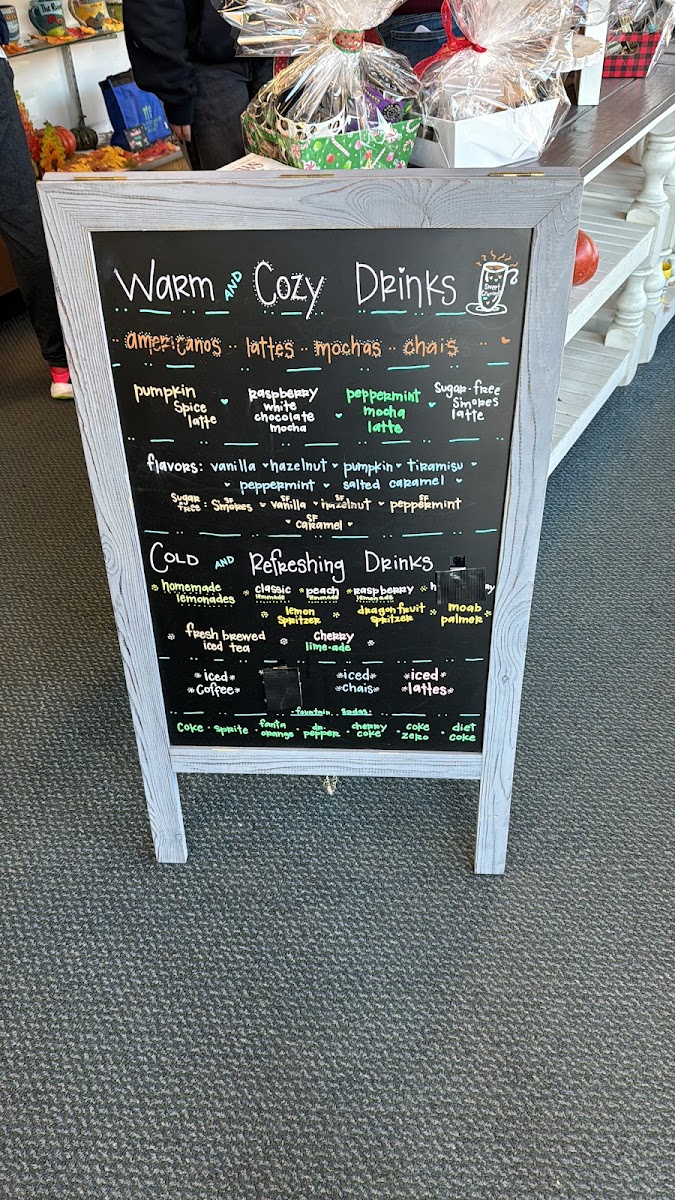 Warm AND Cozy Drinks
Sweet
americanos · lattes · mochas · chais
pumpkin
spice
latte
raspberry
white
chocolate
mocha
peppermint
mocha
latte
Sugar-free
Smores
latte
flavors: vanilla hazelnut pumpkin tiramisu
peppermint salted caramel
Sugar free: SF Smores SF vanilla SF hazelnut SF peppermint
SF caramel
Cold AND Refreshing Drinks
homemade
lemonades
classic
lemonade
peach
lemonade
raspberry
lemonade
lemon
spritzer
dragonfruit
spritzer
moab
palmer
fresh brewed
iced tea
cherry
lime-ade
iced
coffee
iced
chais
iced
lattes
fountain sodas
coke · sprite · fanta orange · dr. pepper · cherry coke · coke zero · diet coke